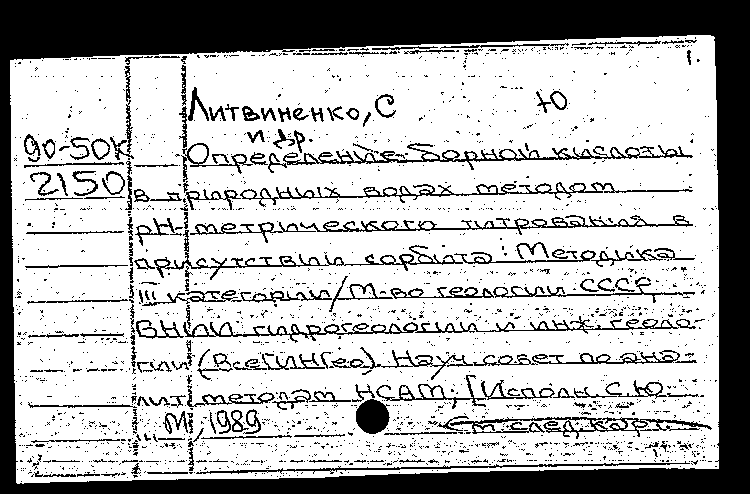 1.
Литвиненко, С Ю
и др.
90-50К Определение борной кислоты
2150 в природных водах методом
pH-метрического титрования в
присутствии сорбита: Методика
III категории/М-во геологии СССР,
ВНИИ гидрогеологии и инж. геоло-
гии (ВСЕГИНГео). Науч. совет по ана-
лит. методам НСАМ; [Исполн. С.Ю.
... М, 1989 См. след. карт.